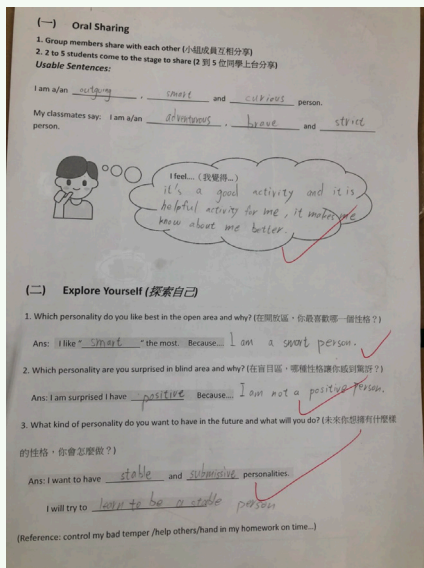 (一) Oral Sharing
1. Group members share with each other (小組成員互相分享)
2. 2 to 5 students come to the stage to share (2 到 5 位同學上台分享)
Usable Sentences:
I am a/an outgoing , smart and curious person.
My classmates say: I am a/an adventurous , brave and strict
person.
I feel.... (我覺得...)
it's a good activity and it is
helpful activity for me , it makes me
know about me better.
(二) Explore Yourself (探索自己)
1. Which personality do you like best in the open area and why? (在開放區，你最喜歡哪一個性格？)
Ans: I like " smart " the most. Because.... I am a smart person.
2. Which personality are you surprised in blind area and why? (在盲目區，哪種性格讓你感到驚訝？)
Ans: I am surprised I have positive Because.... I am not a positive person.
3. What kind of personality do you want to have in the future and what will you do? (未來你想擁有什麼樣
的性格，你會怎麼做？)
Ans: I want to have stable and submissive personalities.
I will try to learn to be a stable person
(Reference: control my bad temper /help others/hand in my homework on time...)